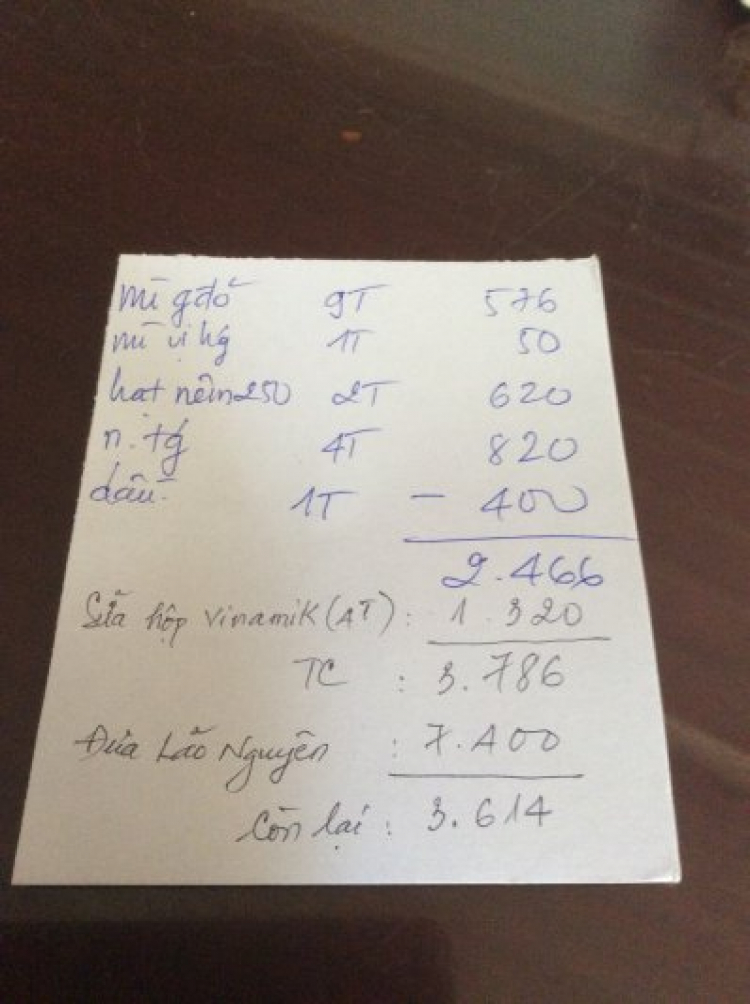 mì gđỏ 9T 576
mì vị hg 1T 50
hạt nêm 250 2T 620
n. tg 4T 820
dầu 1T - 400
2.466
Sữa hộp Vinamik (4T) : 1.320
TC : 3.786
Đưa Lão Nguyên : 7.400
Còn lại : 3.614